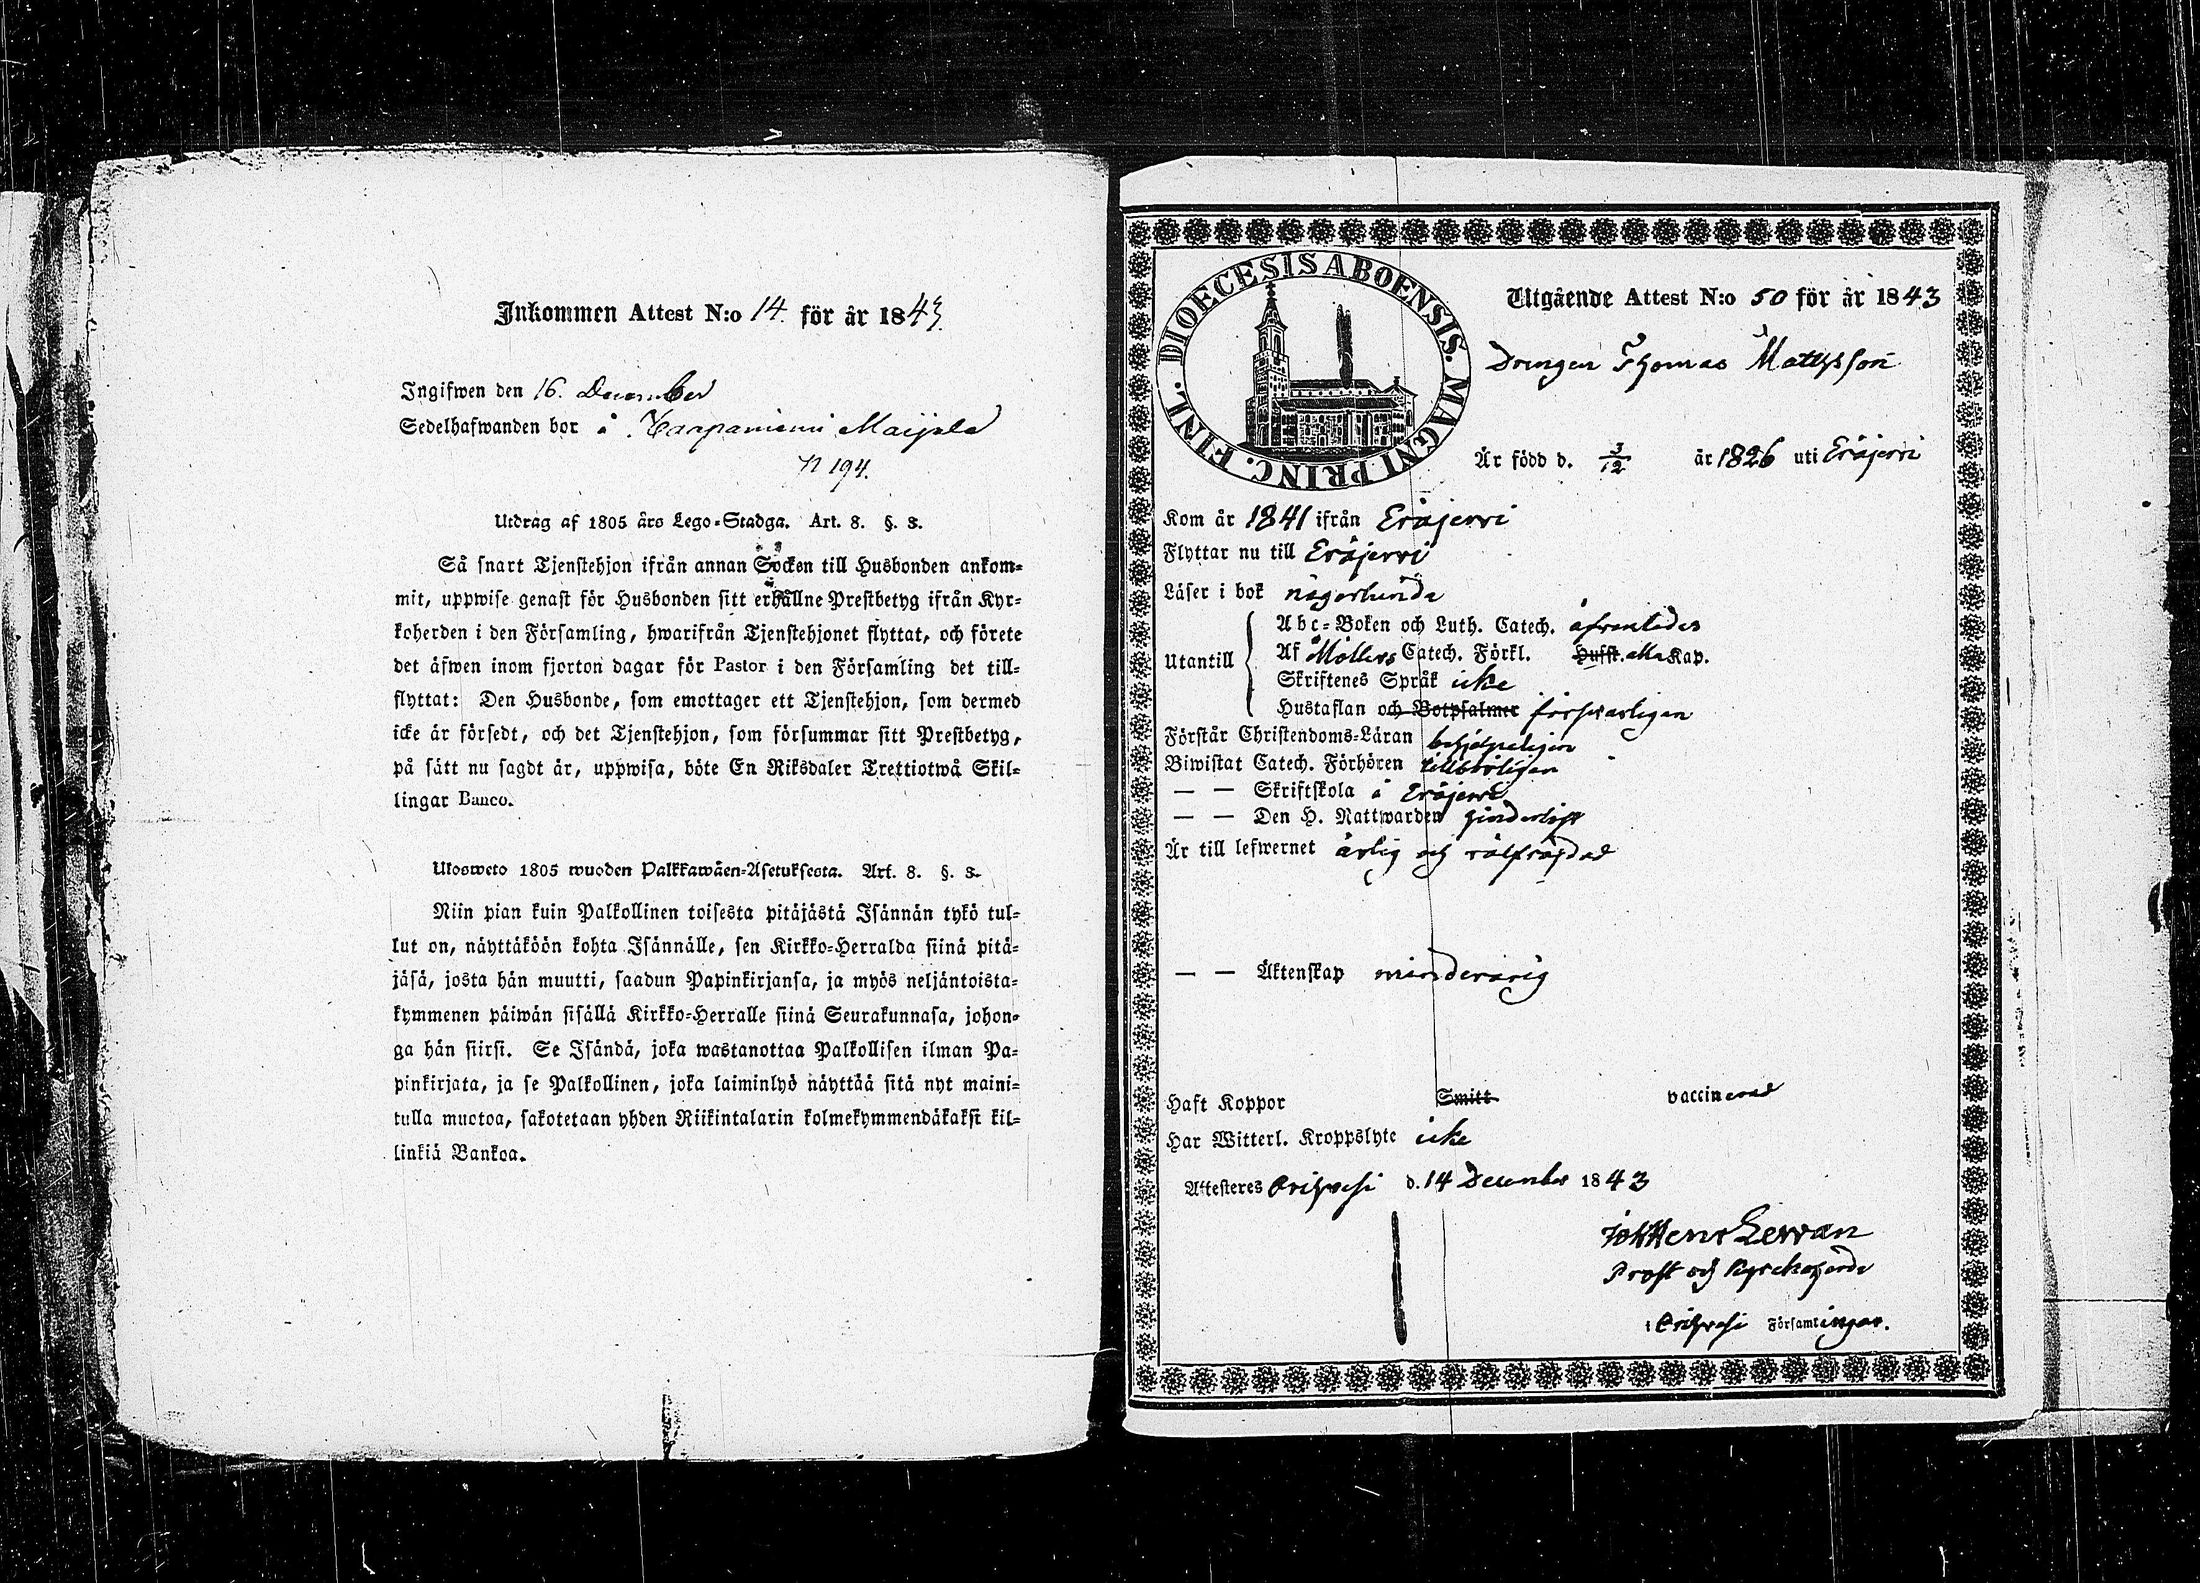 Inkommen Attest N:o 14. för år 1843.
Ingifwen den 16. December
Sedelhafwanden bor å Haapaniemi Maijala
N 194.
Utdrag af 1805 års Lego-Stadga. Art. 8. §. 8.
Så snart Tjenstehjon ifrån annan Socken till Husbonden ankom-
mit, uppwise genast för Husbonden sitt erhållne Prestbetyg ifrån Kyr-
koherden i den Församling, hwarifrån Tjenstehjonet flyttat, och förete
det äfwen inom fjorton dagar för Pastor i den Församling det till-
flyttat: Den Husbonde, som emottager ett Tjenstehjon, som dermed
icke är försedt, och det Tjenstehjon, som försummar sitt Prestbetyg,
på sätt nu sagdt är, uppwisa, böte En Riksdaler Trettiotwå Skil-
lingar Banco.
Ulosweto 1805 wuoden Palkkawäen-Asetuksesta. Art. 8. §. 8.
Niin pian kuin Palkollinen toisesta pitäjästä Isännän tykö tul-
lut on, näyttäköön kohta Isännälle, sen Kirkko-Herralda siinä pitä-
jäsä, josta hän muutti, saadun Papinkirjansa, ja myös neljäntoista-
kymmenen päiwän sisällä Kirkko-Herralle siinä Seurakunnasa, johon-
ga hän siirsi. Se Isändä, joka wastanottaa Palkollisen ilman Pa-
pinkirjata, ja se Palkollinen, joka laiminlyö näyttää sitä nyt maini-
tulla muotoa, sakotetaan yhden Riikintalarin kolmekymmendäkaksi kil-
linkiä Bankoa.
DIOECESIS ABOENSIS. MAGNI PRINC. FINL.
Utgående Attest N:o 50 för år 1843
Drengen Thomas Mattsson
Är född d. 3/12 år 1826 uti Eräjervi
Kom år 1841 ifrån Eräjervi
Flyttar nu till Eräjervi
Läser i bok någorlunda
Utantill
Abc-Boken och Luth. Catech. åfvanledes
Af Möllers Catech. Förkl. Husst. alla Kap.
Skriftenes Språk icke
Hustaflan och Botpsalmer försvarligen
Förstår Christendoms-Läran behjelpeligen
Biwistat Catech. Förhören tillbörligen
— — Skriftskola i Eräjervi
— — Den H. Nattwarden hinderligt
Är till lefwernet ärlig och välfräjdad
— — Äktenskap minderårig
Haft Koppor Smitt vaccinerad
Har Witterl. Kroppslyte icke
Attesteres Orihvesi d. 14 December 1843
Joh Henr Levvan
Prost och Kyrckoherde
i Orihvesi Församlingar.